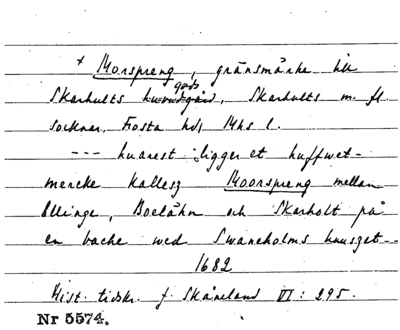 × Morspreng, gränsmärke till
gods
Skarhults huvudgård, Skarhults m. fl.
socknar, Frosta hd, Mhs l.
--- huarest ligger et huffwet-
mercke kallesz Moorspreng mellan
Ellinge, Boelähn och Skarholt på
en backe wed Swaneholms huuszet---
1682
Hist. tidskr. f. Skåneland VI: 295.
Nr 5574.